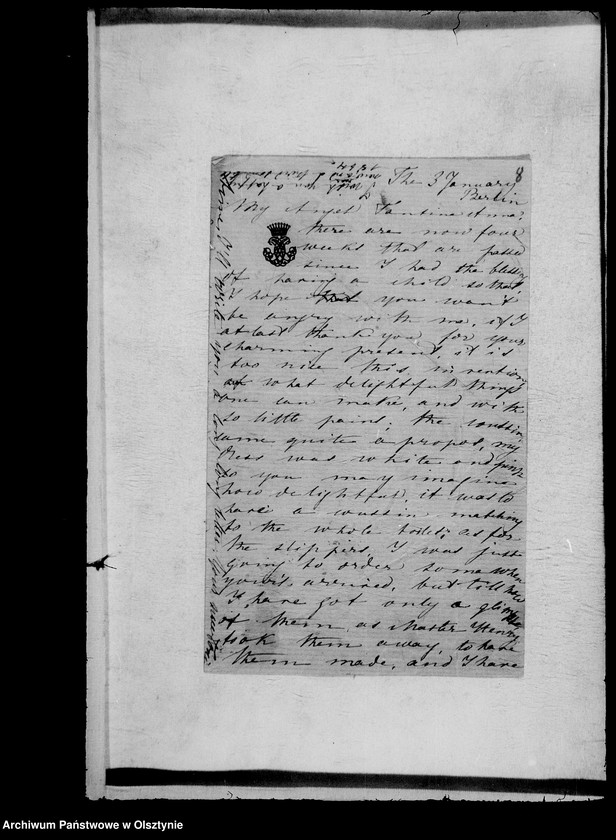 8
The 3 January
Berlin
1834
My Angel Tantine Anna,
there are now four
weeks that are passed
since I had the bless
of having a child so that
I hope that you want
be angry with me, if I
at last thank you for your
charming present, it is
too nice this invention
of what delightful things
one can make, and with
so little pains; the
came quite a propos, my
dress was white and pink
so you may imagine
how delightful, it was to
have a matching
to the whole toilet; as for
the slippers, I was just
going to order some when
your's arrived, but till now
I have got only a glimpse
of them, as Master Henry
took them away, to have
them made, and I have
I'll write you a long long letter
Archiwum Państwowe w Olsztynie